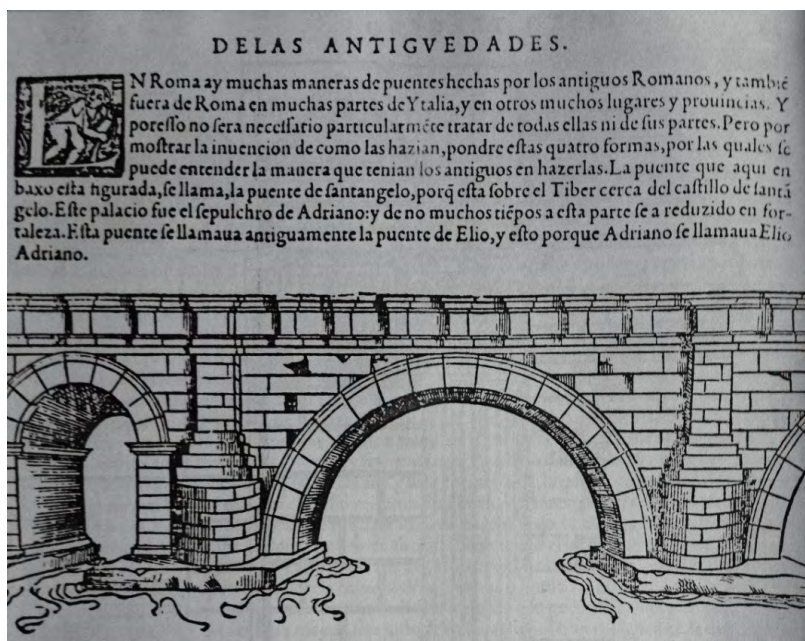 DELAS ANTIGVEDADES.
EN Roma ay muchas maneras de puentes hechas por los antiguos Romanos, y tambiē
fuera de Roma en muchas partes de Ytalia, y en otros muchos lugares y prouincias. Y
poresſo no ſera neceſſario particularmēte tratar de todas ellas ni de ſus partes. Pero por
moſtrar la inuencion de como las hazian, pondre eſtas quatro formas, por las quales ſe
puede entender la manera que tenian los antiguos en hazerlas. La puente que aqui en
baxo eſta figurada, ſe llama, la puente de ſantangelo, porq̄ eſta ſobre el Tiber cerca del caſtillo de ſantā
gelo. Eſte palacio fue el ſepulchro de Adriano: y de no muchos tiēpos a eſta parte ſe a reduzido en for-
taleza. Eſta puente ſe llamaua antiguamente la puente de Elio, y eſto porque Adriano ſe llamaua Elio
Adriano.